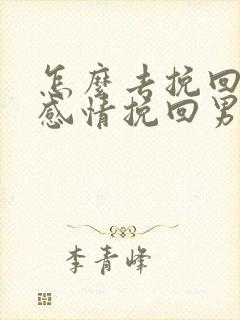 怎麼去挽回
感情挽回男
李青峰